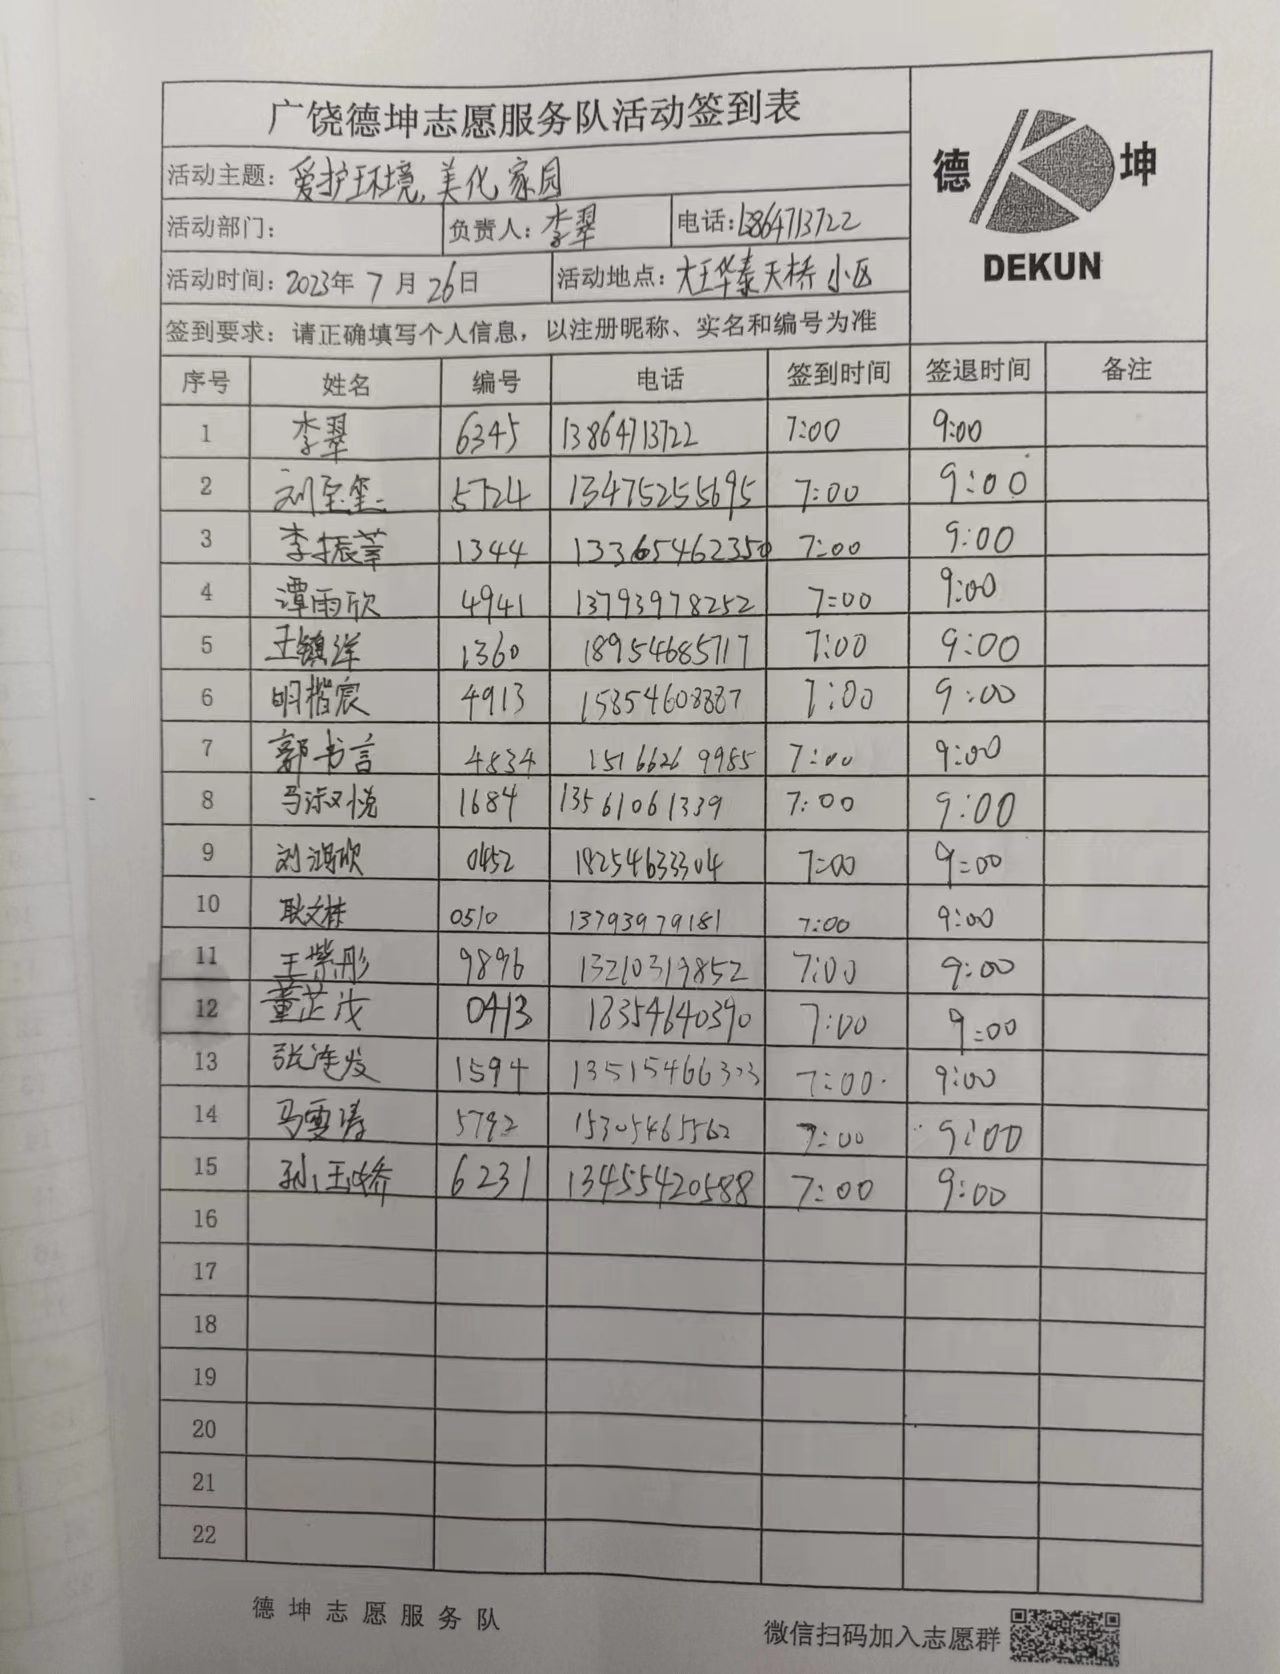 广饶德坤志愿服务队活动签到表
德 坤
DEKUN
活动主题：爱护环境，美化家园
活动部门： 负责人：李翠 电话：13864713722
活动时间：2023年 7 月 26 日 活动地点：大王华泰天桥小区
签到要求：请正确填写个人信息，以注册昵称、实名和编号为准
序号 姓名 编号 电话 签到时间 签退时间 备注
1 李翠 6345 13864713722 7:00 9:00
2 刘至玺 5724 13475255695 7:00 9:00
3 李振 1344 13365462350 7:00 9:00
4 谭雨欣 4941 13793978252 7:00 9:00
5 王镇洋 1360 18954685717 7:00 9:00
6 明楷宸 4913 15854608887 7:00 9:00
7 郭书言 4834 15166269985 7:00 9:00
8 马淑悦 1684 13561061339 7:00 9:00
9 刘鸿欣 0452 18254633304 7:00 9:00
10 耿文栋 0510 13793979181 7:00 9:00
11 王紫彤 9896 13210319852 7:00 9:00
12 董芷茂 0413 18354640390 7:00 9:00
13 张连发 1594 13515466323 7:00 9:00
14 马雯涛 5792 15305465562 7:00 9:00
15 孙玉娇 6231 13455420588 7:00 9:00
16
17
18
19
20
21
22
德坤志愿服务队
微信扫码加入志愿群